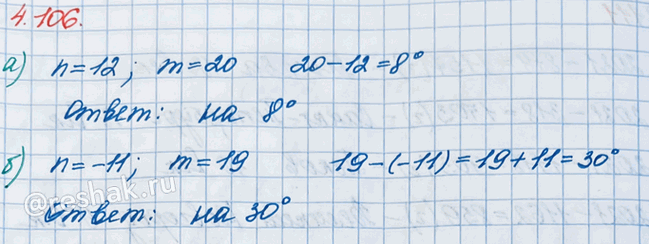 4.106.
а) n=12; m=20 20-12=8°
Ответ: на 8°
б) n=-11; m=19 19-(-11)=19+11=30°
@reshak.ru
Ответ: на 30°